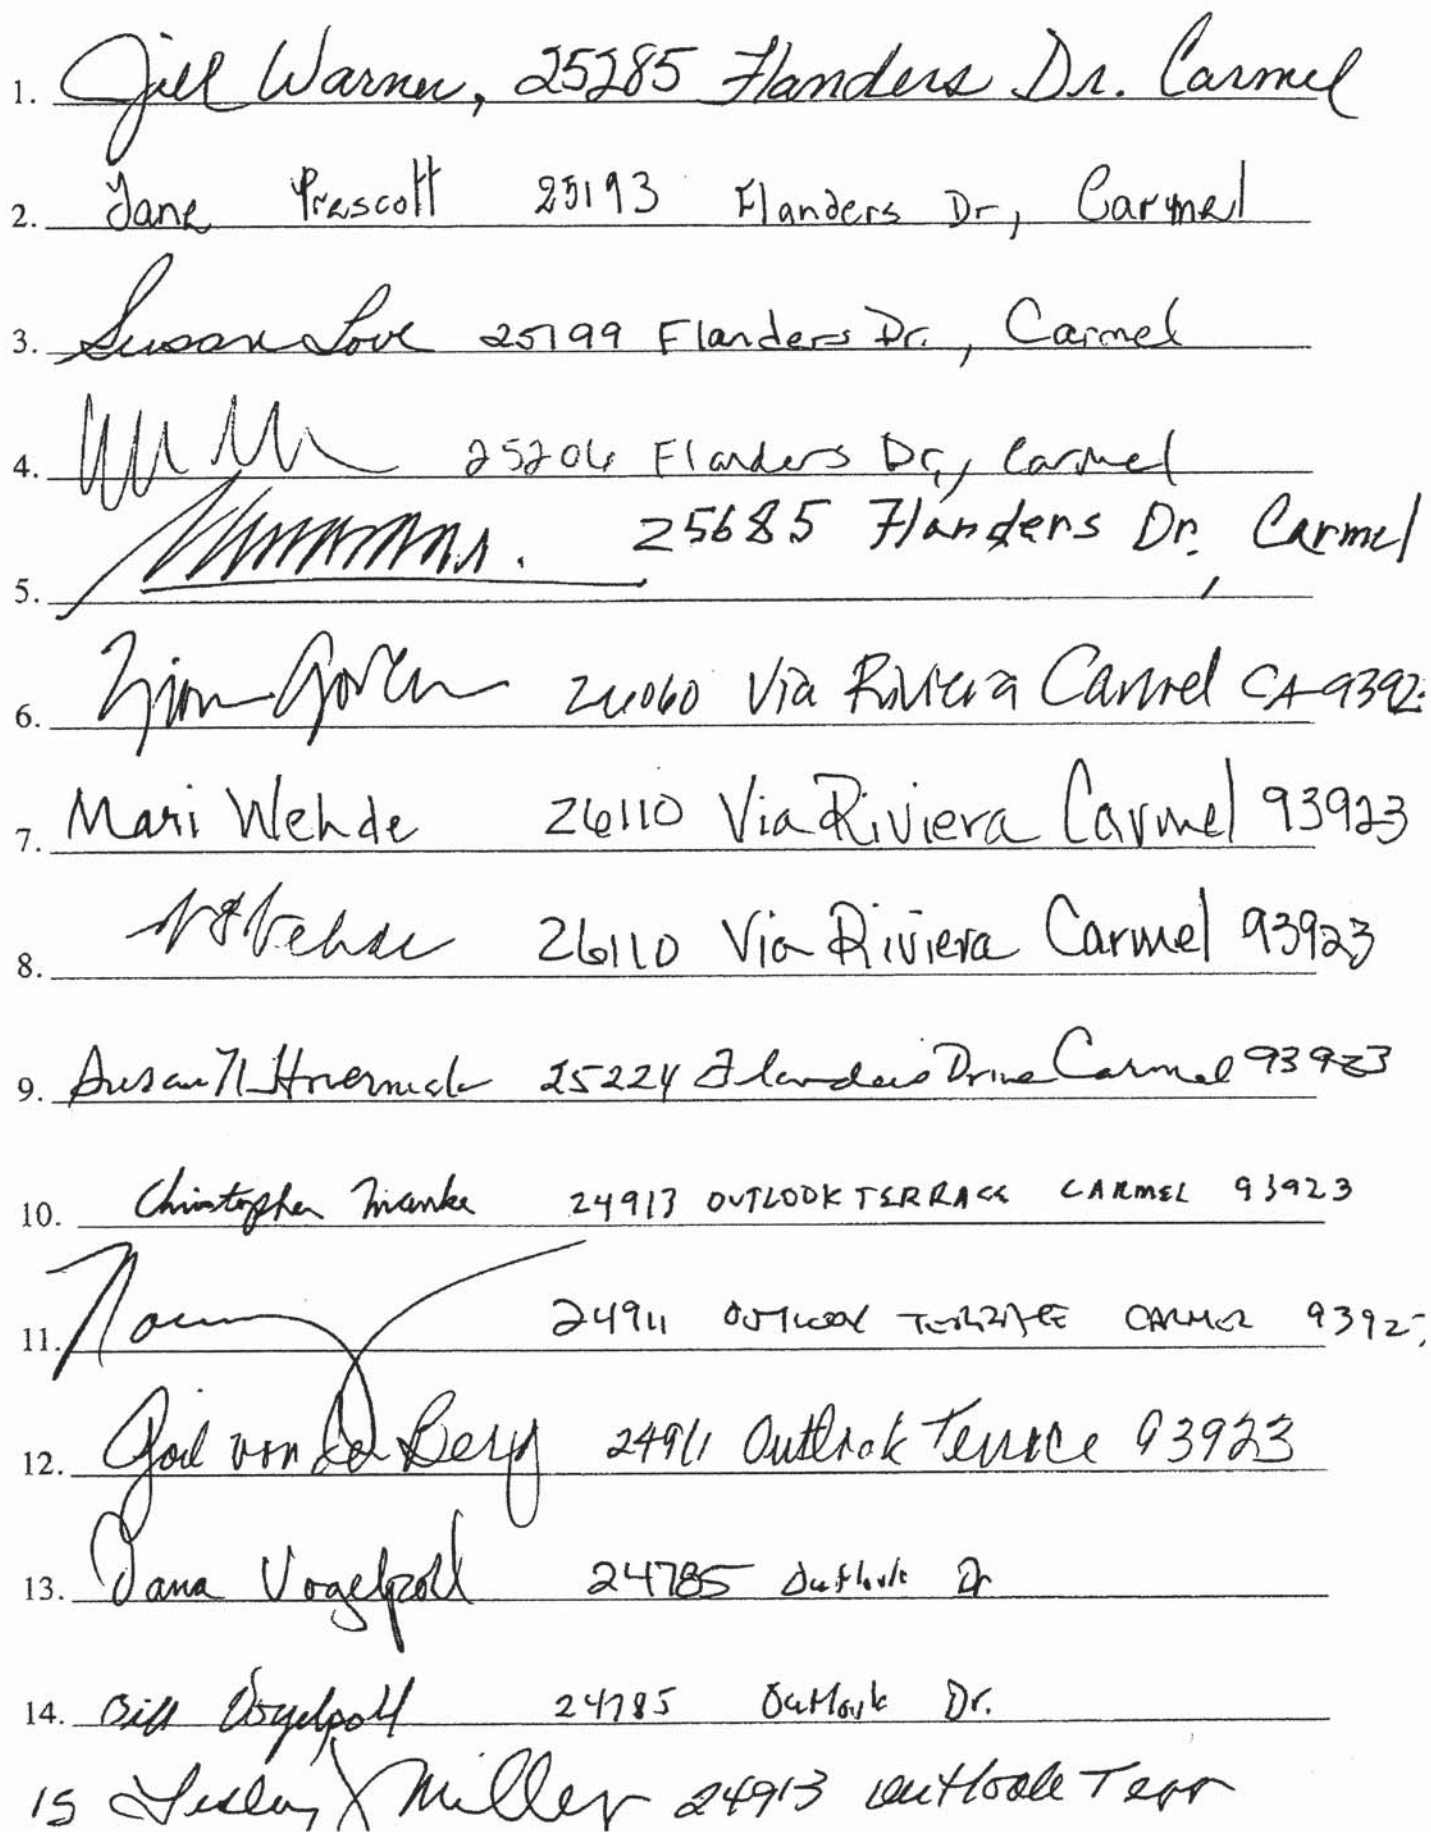 1. Jill Warner, 25285 Flanders Dr. Carmel
2. Jane Prescott 25193 Flanders Dr, Carmel
3. Susan Love 25199 Flanders Dr., Carmel
4. 25206 Flanders Dr, Carmel
5. 25685 Flanders Dr, Carmel
6. 26060 Via Riviera Carmel CA 9392
7. Mari Wehde 26110 Via Riviera Carmel 93923
8. Wehde 26110 Via Riviera Carmel 93923
9. Susan 25224 Flanders Drive Carmel 93923
10. Christopher 24913 OUTLOOK TERRACE CARMEL 93923
11. 24911 OUTLOOK TERRACE CARMEL 9392
12. von der Berg 24911 Outlook Terrace 93923
13. Dana Vogelpohl 24785 Outlook Dr
14. Bill Vogelpohl 24785 Outlook Dr.
15 Miller 24913 Outlook Terr